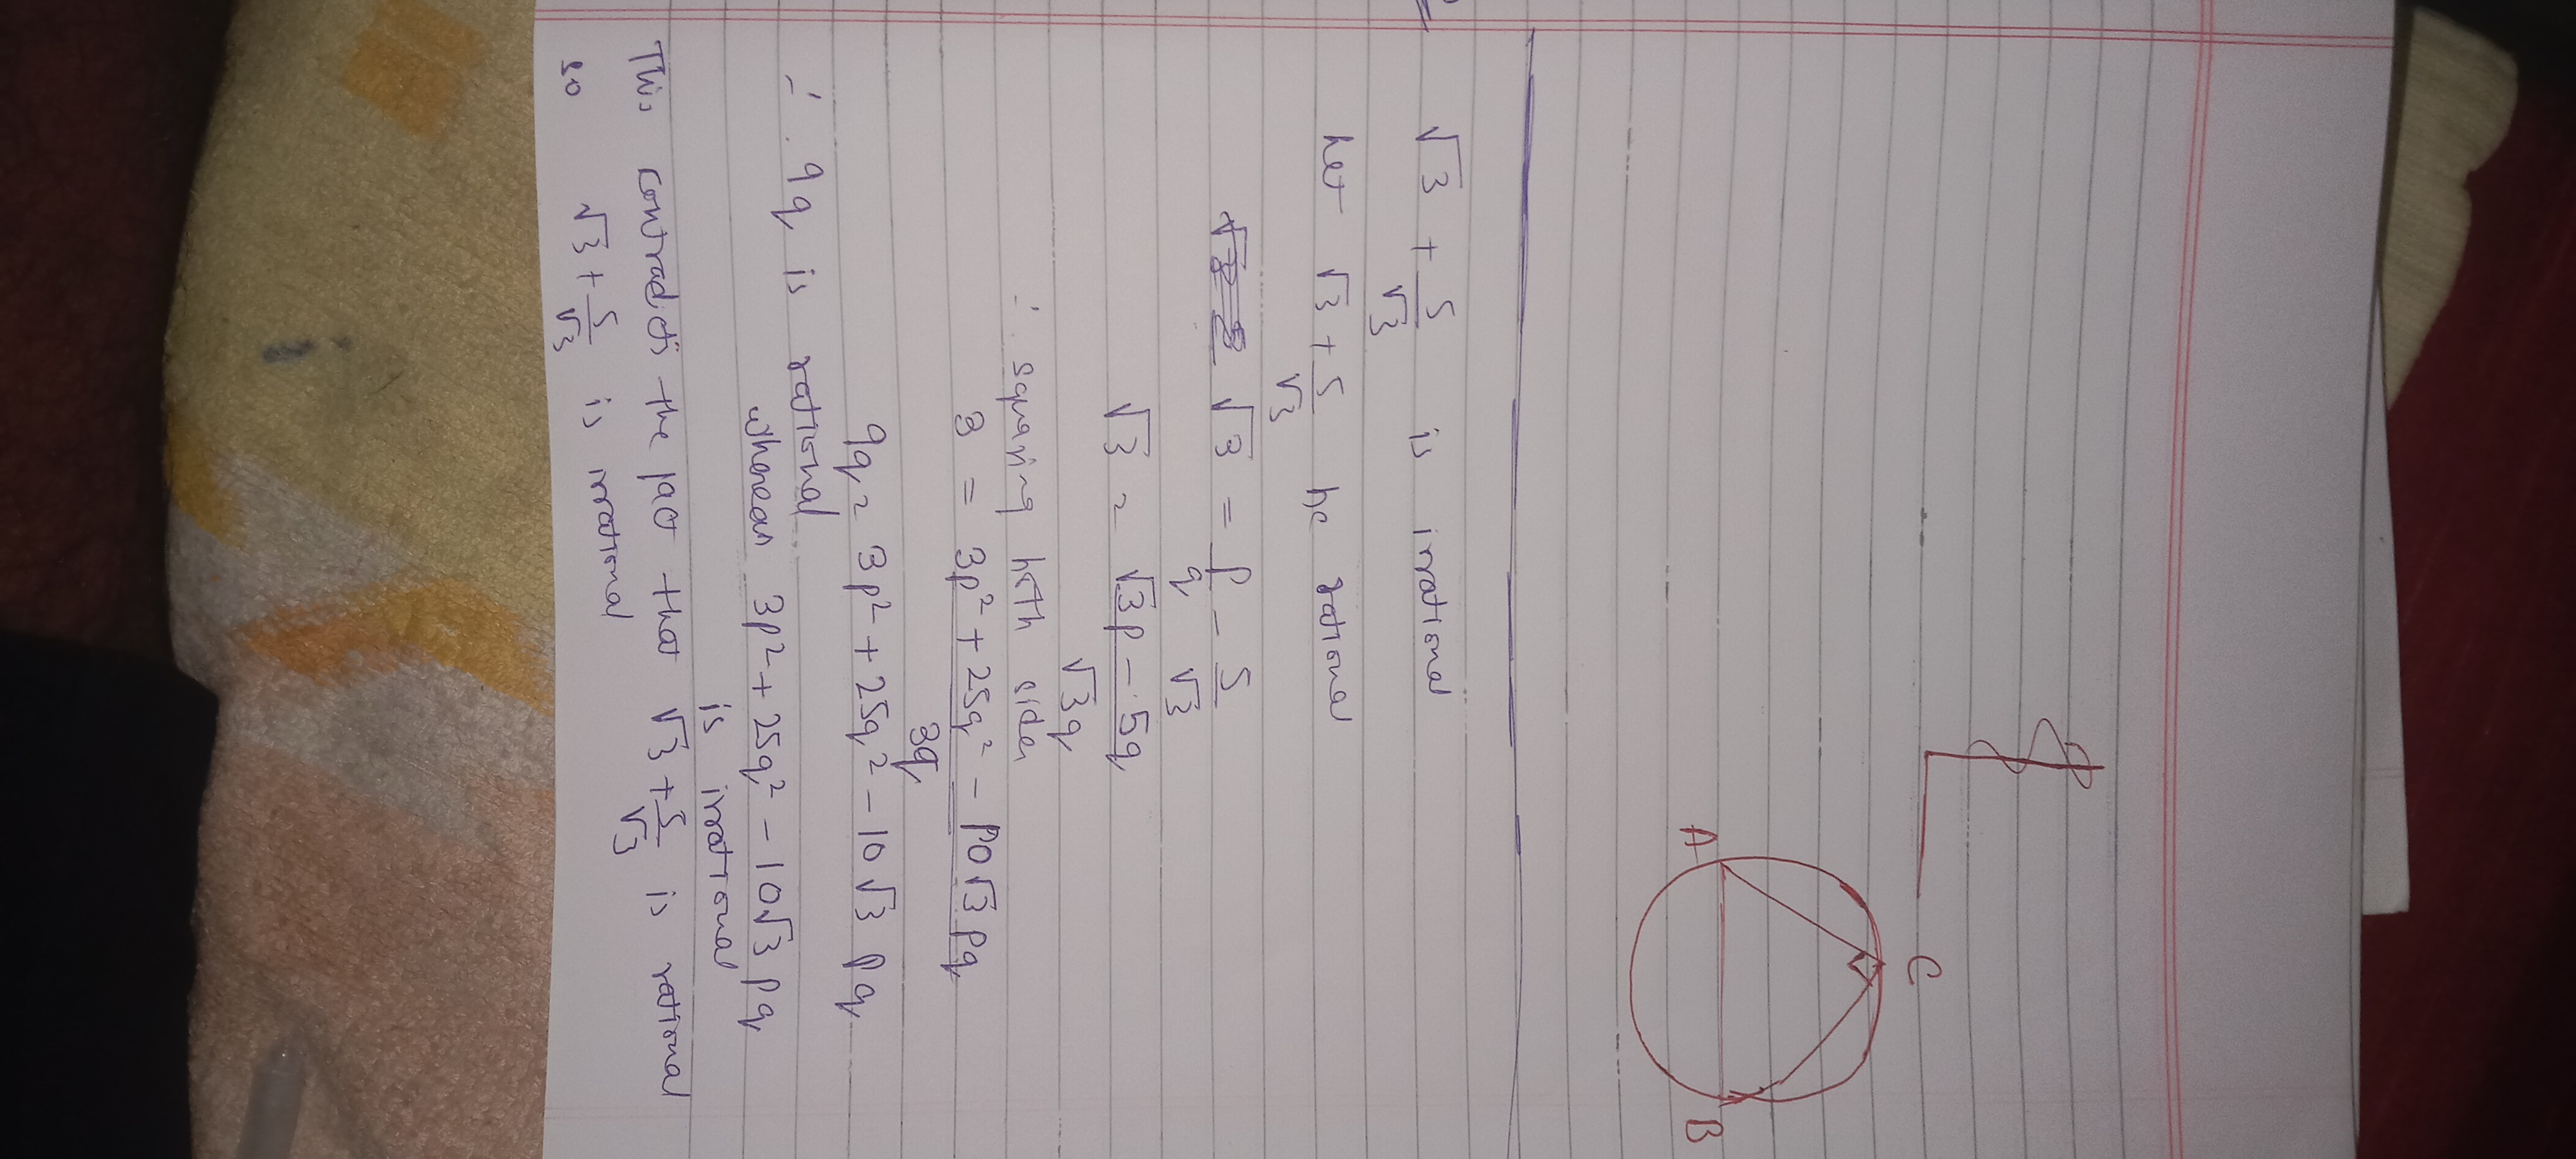 C
A
B
√3 + 5/√3 is irrational
Let √3 + 5/√3 be rational
√3 = p/q - 5/√3
√3 = (√3p - 5q)/(√3q)
∴ squaring both sides
3 = (3p² + 25q² - 10√3 pq)/(3q)
9q = 3p² + 25q² - 10√3 pq
∴ 9q is rational
whereas 3p² + 25q² - 10√3 pq
is irrational
This contradicts the fact that √3 + 5/√3 is rational
so √3 + 5/√3 is irrational